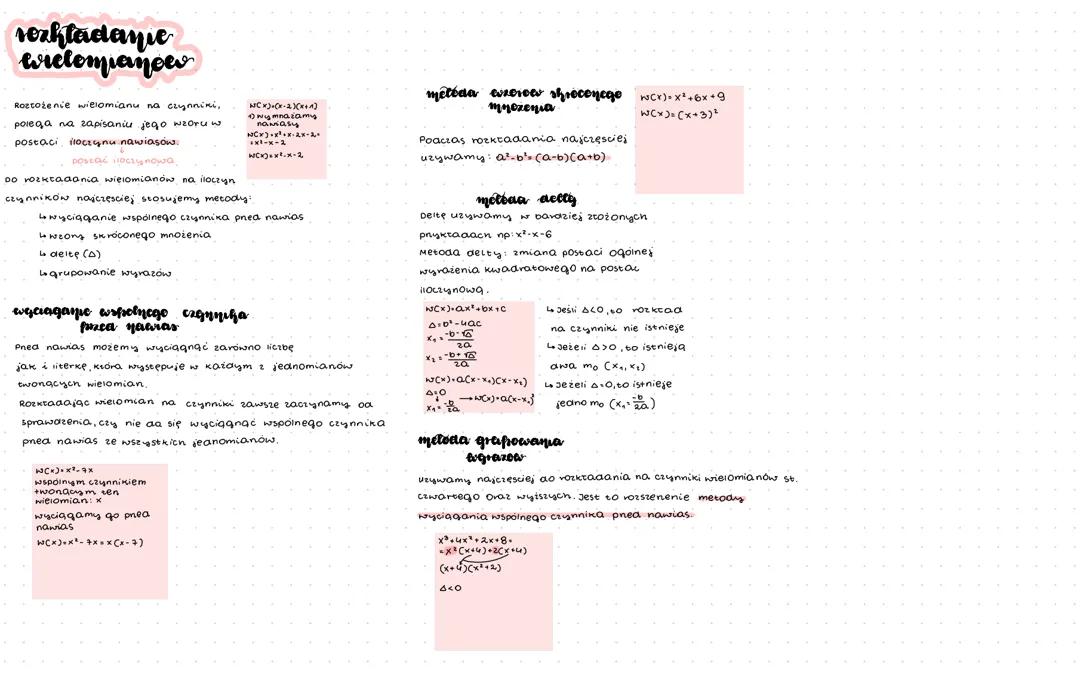 rozkładanie
wielomianów
Rozłożenie wielomianu na czynniki,
polega na zapisaniu jego wzoru w
postaci iloczynu nawiasów.
↓
postać iloczynowa
W(x)=(x-2)(x+1)
1) wymnażamy
nawiasy
W(x)=x²+x-2x-2=
=x²-x-2
W(x)=x²-x-2
Do rozkładania wielomianów na iloczyn
czynników najczęściej stosujemy metody:
↳ wyciąganie wspólnego czynnika przed nawias
↳ wzory skróconego mnożenia
↳ deltę (Δ)
↳ grupowanie wyrazów
wyciąganie wspólnego czynnika
przed nawias
Przed nawias możemy wyciągnąć zarówno liczbę
jak i literkę, która występuje w każdym z jednomianów
tworzących wielomian.
Rozkładając wielomian na czynniki zawsze zaczynamy od
sprawdzenia, czy nie da się wyciągnąć wspólnego czynnika
przed nawias ze wszystkich jednomianów.
W(x)=x²-7x
wspólnym czynnikiem
tworzącym ten
wielomian: x
wyciągamy go przed
nawias
W(x)=x²-7x=x(x-7)
metoda wzorów skróconego
mnożenia
Podczas rozkładania najczęściej
używamy: a²-b²=(a-b)(a+b)
W(x)=x²+6x+9
W(x)=(x+3)²
metoda delty
Deltę używamy w bardziej złożonych
przykładach np: x²-x-6
Metoda delty: zmiana postaci ogólnej
wyrażenia kwadratowego na postać
iloczynową.
W(x)=ax²+bx+c
Δ=b²-4ac
x₁=(-b-√Δ)/2a
x₂=(-b+√Δ)/2a
W(x)=a(x-x₁)(x-x₂)
Δ=0
↓ → W(x)=a(x-x₁)²
x₁=-b/2a
↳ Jeśli Δ<0, to rozkład
na czynniki nie istnieje
↳ Jeżeli Δ>0, to istnieją
dwa m₀ (x₁,x₂)
↳ Jeżeli Δ=0, to istnieje
jedno m₀ (x₁=-b/2a)
metoda grupowania
wyrazów
Używamy najczęściej do rozkładania na czynniki wielomianów st.
czwartego oraz wyższych. Jest to rozszerzenie metody
wyciągania wspólnego czynnika przed nawias.
x³+4x²+2x+8=
=x²(x+4)+2(x+4)
(x+4)(x²+2)
Δ<0